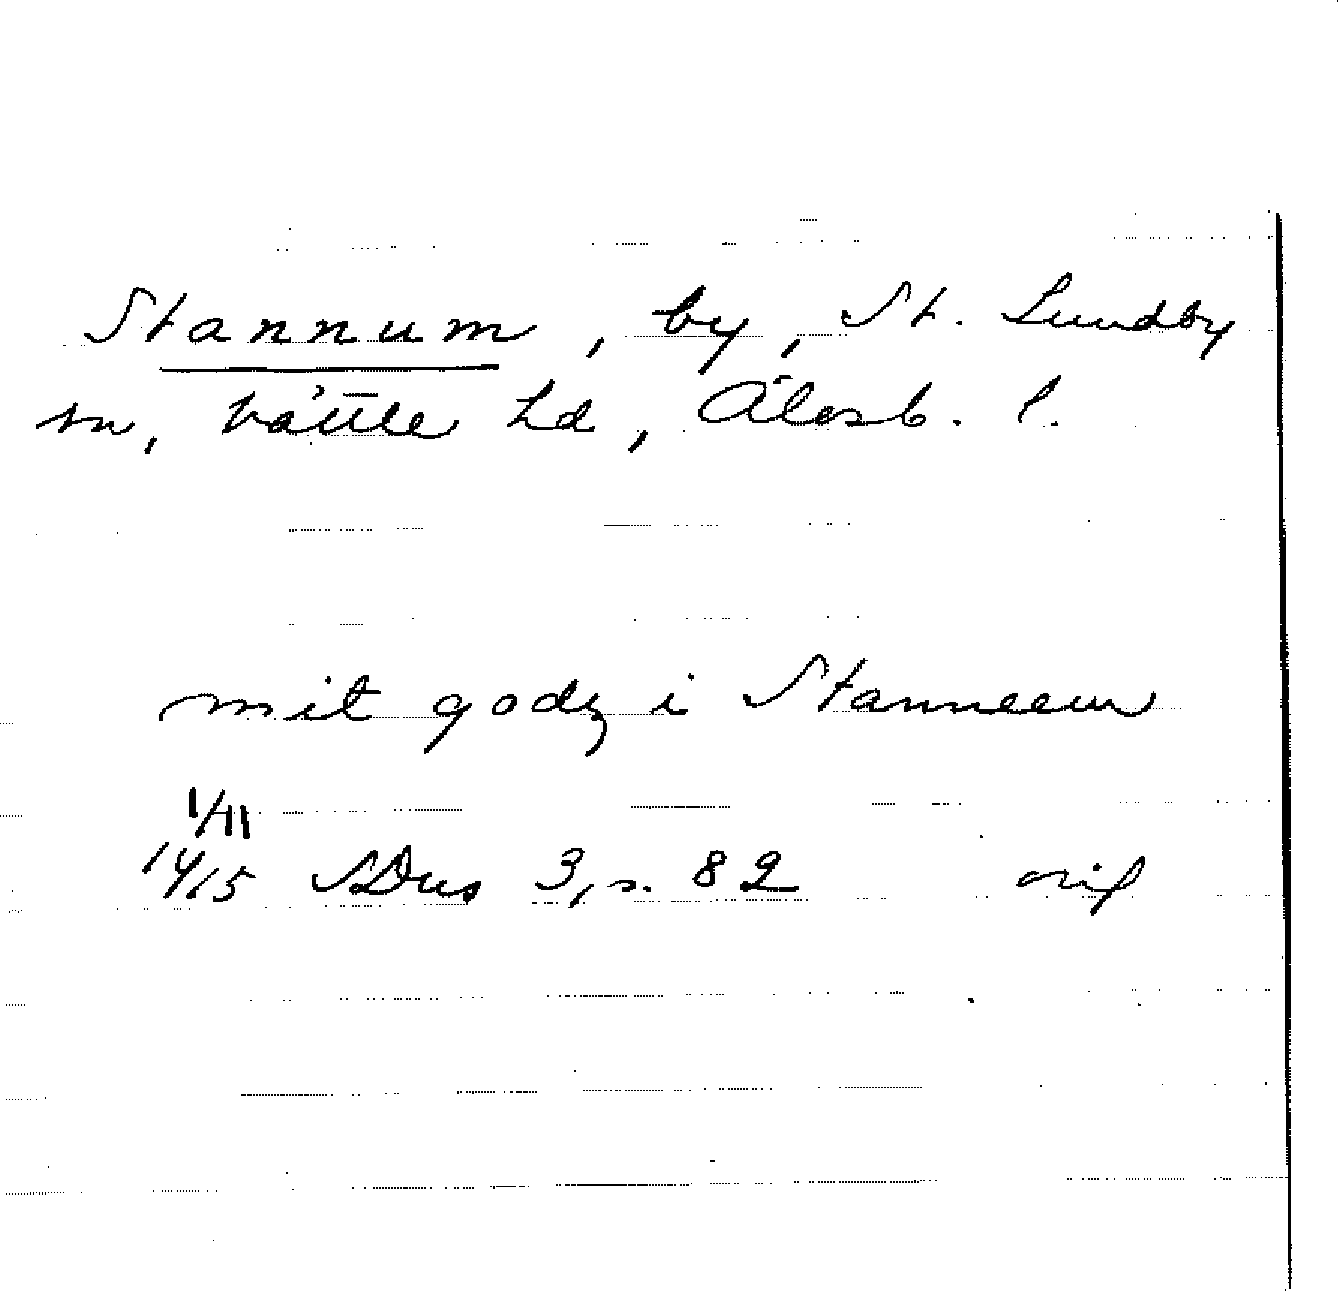 Stannum, by, St. Lundby
sn, Vättle hd, Älvsb. l.
mit godz i Stanneem
1/11
14/15 SDns 3, s. 82 orig